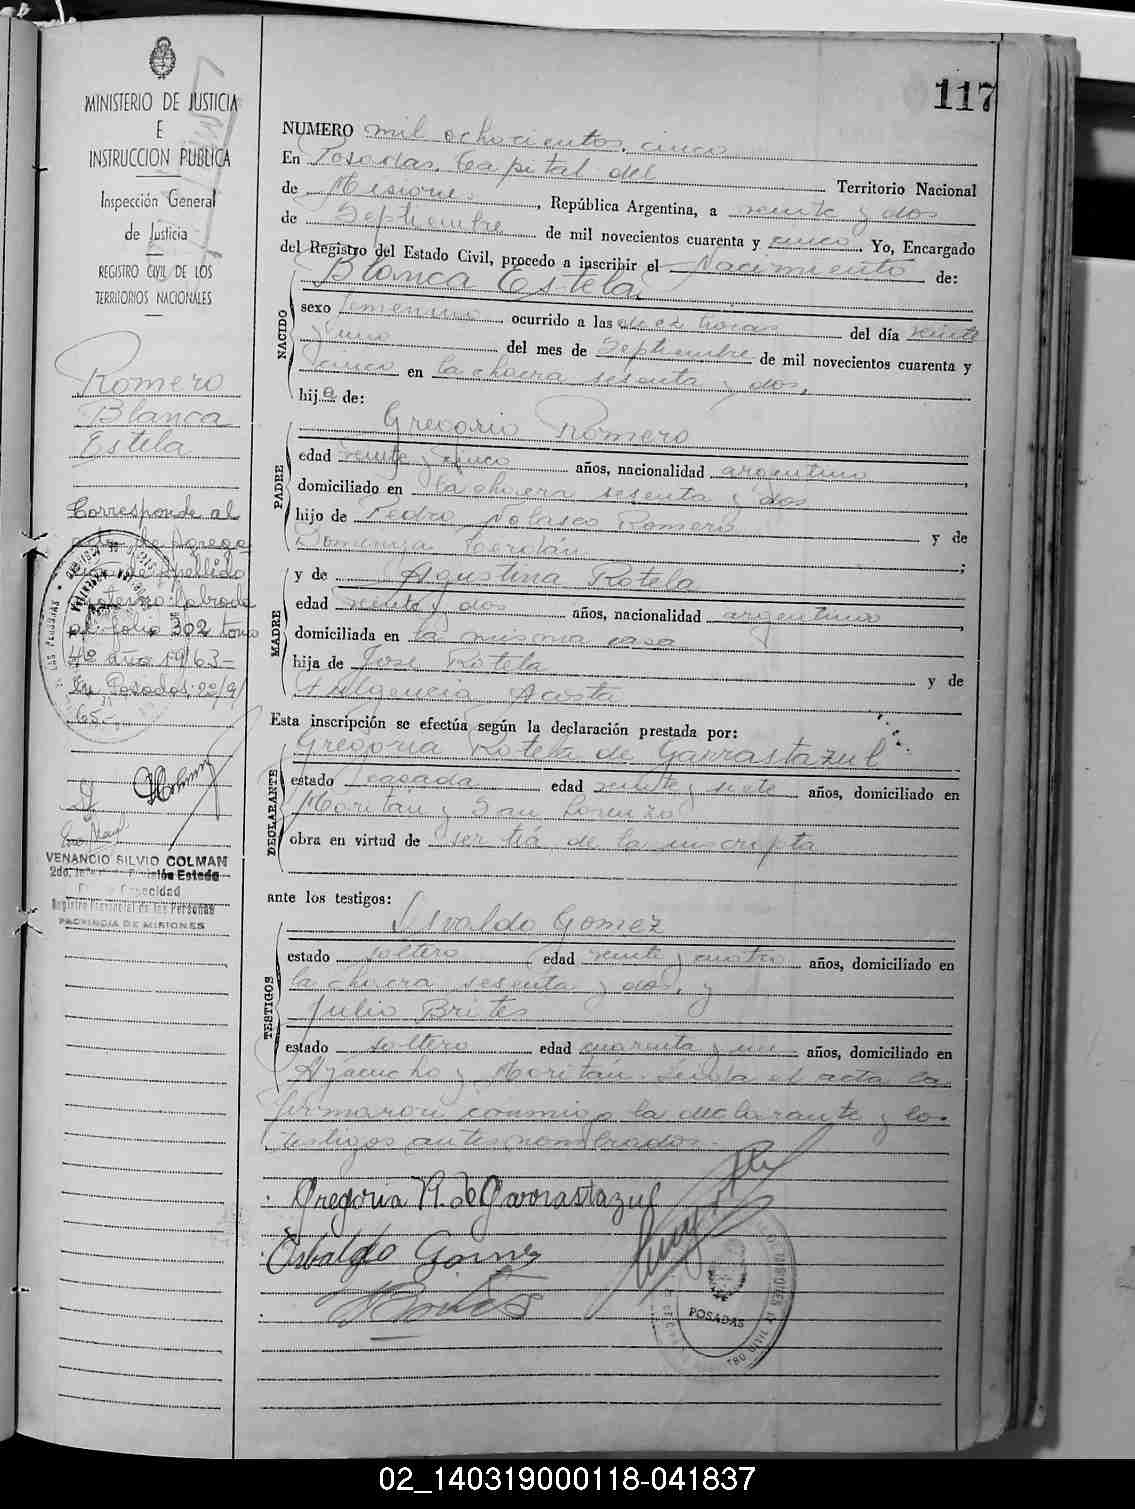 117
MINISTERIO DE JUSTICIA
E
INSTRUCCION PUBLICA
Inspección General
de Justicia
REGISTRO CIVIL DE LOS
TERRITORIOS NACIONALES
Romero
Blanca
Estela
Corresponde al
acta de agrega
apellido
materno labrada
al folio 302 tomo
4º año 1963-
En Posadas, 20/9/
65.-
VENANCIO SILVIO COLMAN
2do. Jefe División Estado
Capacidad
Registro Provincial de las Personas
PROVINCIA DE MISIONES
NUMERO mil ochocientos cinco
En Posadas, Capital del Territorio Nacional
de Misiones, República Argentina, a veinte y dos
de Septiembre de mil novecientos cuarenta y cinco. Yo, Encargado
del Registro del Estado Civil, procedo a inscribir el Nacimiento de:
NACIDO
Blanca Estela
sexo femenino ocurrido a las diez horas del día veinte
y uno del mes de Septiembre de mil novecientos cuarenta y
cinco en la chacra sesenta y dos,
hija de:
PADRE
Gregorio Romero
edad veinte y cinco años, nacionalidad argentino,
domiciliado en la chacra sesenta y dos
hijo de Pedro Nolasco Romero y de
;
MADRE
y de Agustina Rotela
edad veinte y dos años, nacionalidad argentina,
domiciliada en la misma casa
hija de José Rotela y de
Fulgencia Acosta
Esta inscripción se efectúa según la declaración prestada por:
DECLARANTE
Gregoria Rotela de Garrastazul
estado casada edad veinte y siete años, domiciliado en
Moritán y San Lorenzo
obra en virtud de ser tía de la inscripta
ante los testigos:
TESTIGOS
Osvaldo Gomez
estado soltero edad veinte y cuatro años, domiciliado en
la chacra sesenta y dos, y
Julio Brites
estado soltero edad cuarenta y un años, domiciliado en
Ayacucho y Moritán. Leída el acta la
firmaron conmigo la declarante y los
testigos antes nombrados.-
Gregoria R. de Garrastazul
Osvaldo Gomez
POSADAS
02_140319000118-041837